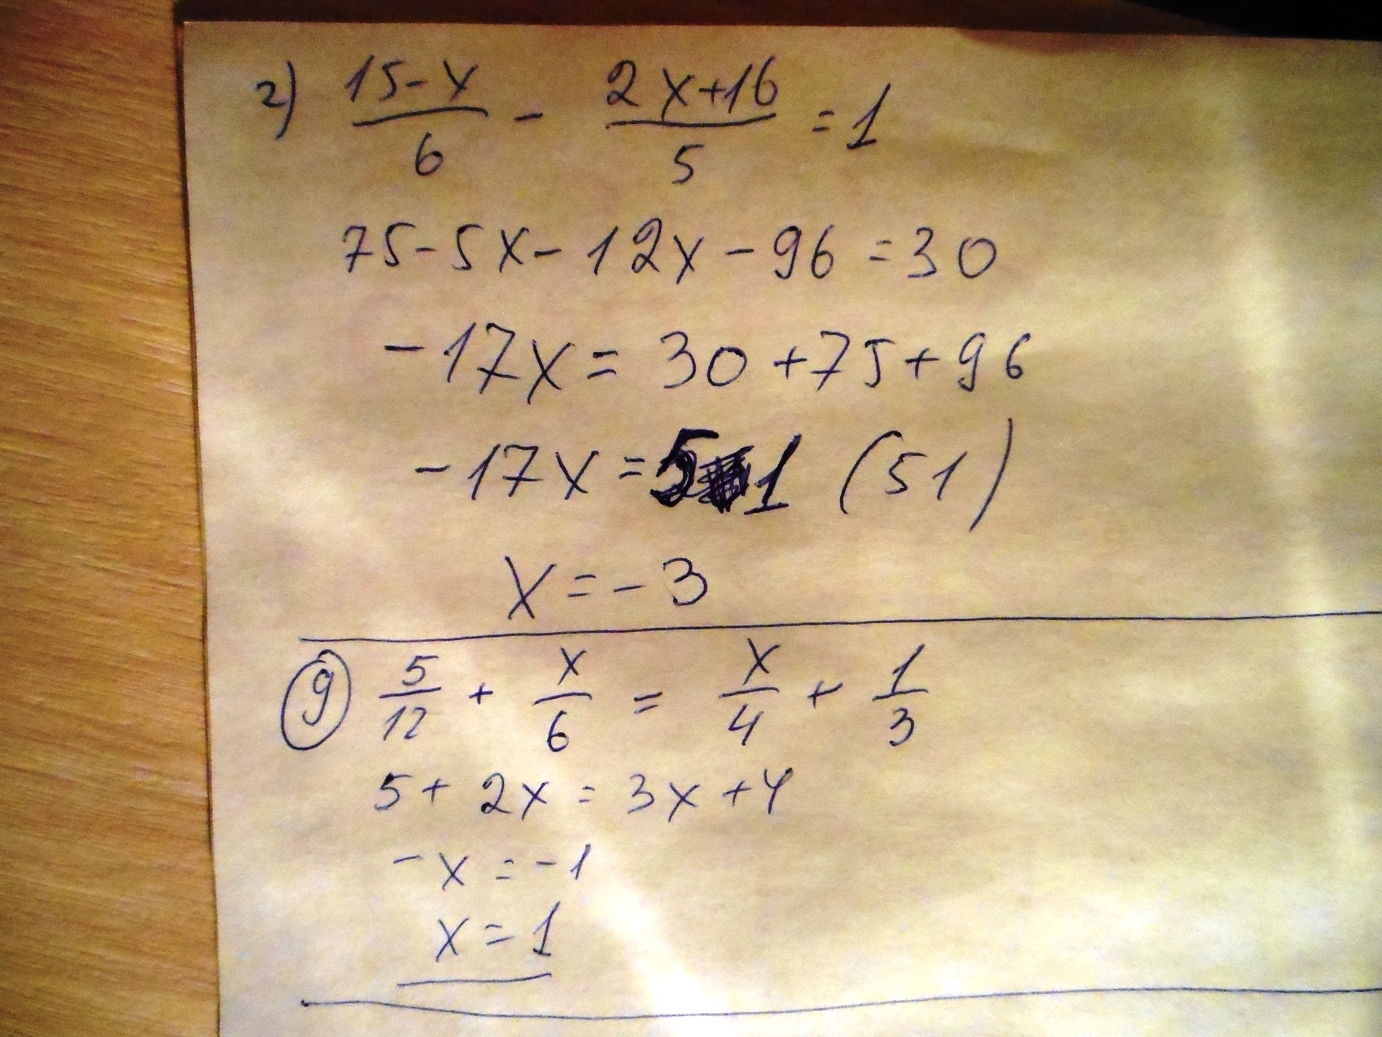 г) (15-x)/6 - (2x+16)/5 = 1
75-5x-12x-96=30
-17x=30+75+96
-17x=51 (51)
x=-3
g 5/12 + x/6 = x/4 + 1/3
5+2x=3x+4
-x=-1
x=1